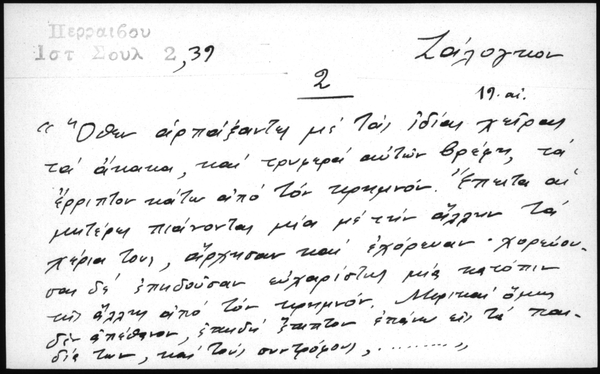 Περραιβου
1στ Σουλ 2,39
Ζάλογκον
2
19. αἰ.
« Ὅθεν ἁρπάξαντες μέ τάς ἰδίας χεῖρας
τά ἄκακα, καί τρυφερά αὐτῶν βρέφη, τά
ἔρριπτον κάτω ἀπό τόν κρημνόν. Ἔπειτα αἱ
μητέρες πιάνοντας μία μέ τήν ἄλλην τά
χέρια τους, ἄρχησαν καί ἐχόρευαν · χορεύου-
σαι δέ ἐπηδοῦσαν εὐχαρίστως μία κατόπιν
τῆς ἄλλης ἀπό τόν κρημνόν. Μερικαί ὅμως
δέν ἀπέθανον, ἐπειδή ἔπιπτον ἐπάνω εἰς τά παι-
διά των, καί τούς συντρόφους, ......... »